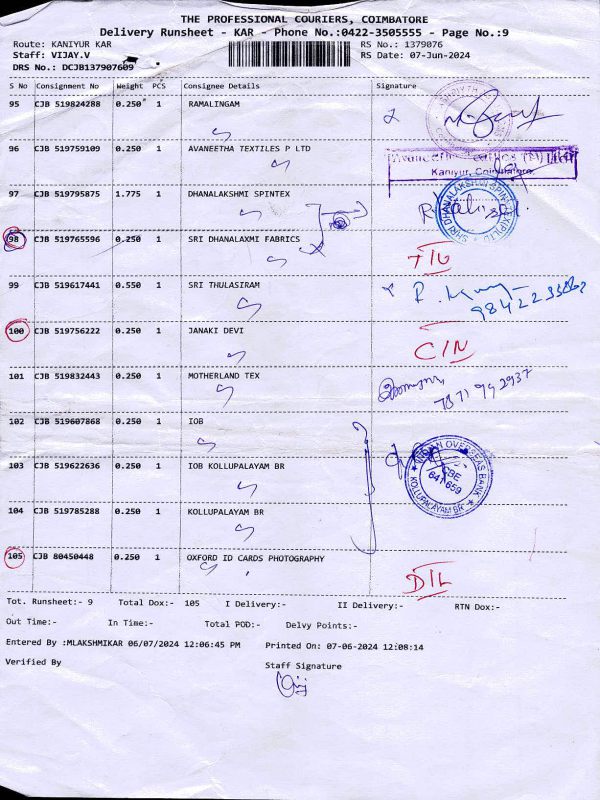 THE PROFESSIONAL COURIERS, COIMBATORE
Delivery Runsheet - KAR - Phone No.:0422-3505555 - Page No.:9
Route: KANIYUR KAR RS No.: 1379076
Staff: VIJAY.V RS Date: 07-Jun-2024
DRS No.: DCJB137907609
S No Consignment No Weight PCS Consignee Details Signature
95 CJB 519824288 0.250 1 RAMALINGAM
96 CJB 519759109 0.250 1 AVANEETHA TEXTILES P LTD
Kaniyur, Coimbatore.
97 CJB 519795875 1.775 1 DHANALAKSHMI SPINTEX
SHRI DHANALAKSHMI SPINTEX (P) LTD
98 CJB 519765596 0.250 1 SRI DHANALAXMI FABRICS
99 CJB 519617441 0.550 1 SRI THULASIRAM
100 CJB 519756222 0.250 1 JANAKI DEVI
CIN
101 CJB 519832443 0.250 1 MOTHERLAND TEX
7871992937
102 CJB 519607868 0.250 1 IOB
103 CJB 519622636 0.250 1 IOB KOLLUPALAYAM BR
INDIAN OVERSEAS BANK
CBE
641 659
KOLLUPALAYAM BR
104 CJB 519785288 0.250 1 KOLLUPALAYAM BR
105 CJB 80450448 0.250 1 OXFORD ID CARDS PHOTOGRAPHY
DTL
Tot. Runsheet:- 9 Total Dox:- 105 I Delivery:- II Delivery:- RTN Dox:-
Out Time:- In Time:- Total POD:- Delvy Points:-
Entered By :MLAKSHMIKAR 06/07/2024 12:06:45 PM Printed On: 07-06-2024 12:08:14
Verified By Staff Signature